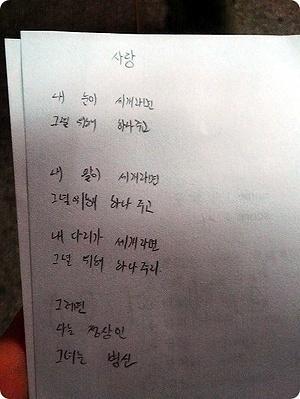 사랑
내 눈이 세개라면
그녈 위해 하나 주고
내 팔이 세개라면
그녈 위해 하나 주고
내 다리가 세개라면
그녈 위해 하나 주리.
그러면
나는 정상인
그녀는 병신